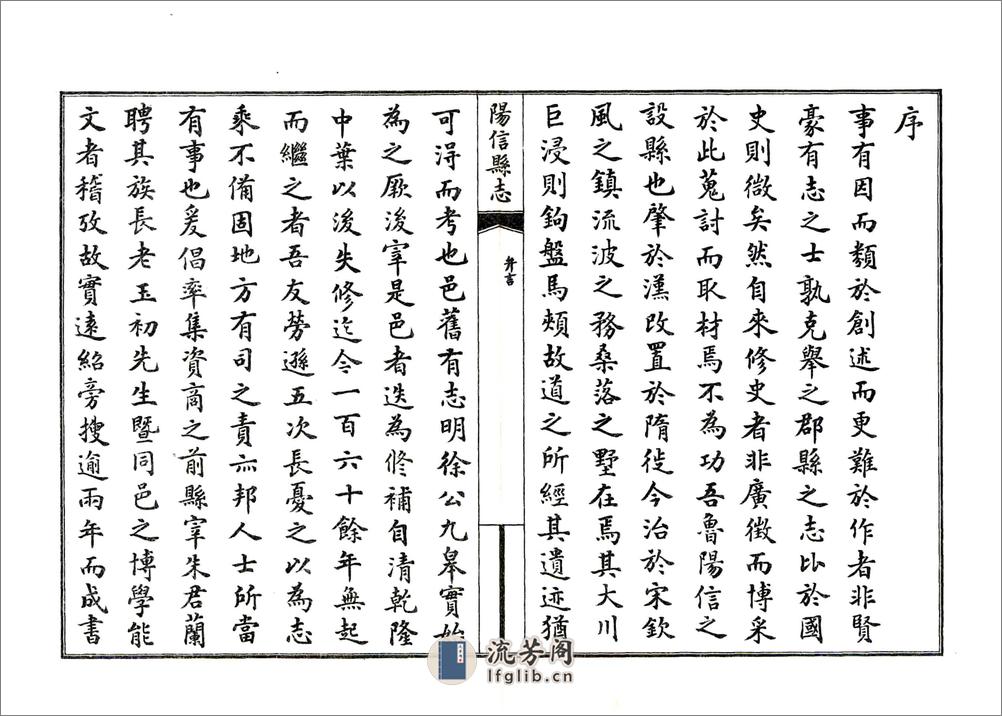 序
事有因而類於創述而更難於作者非賢
豪有志之士孰克舉之郡縣之志比於國
史則微矣然自來修史者非廣徵而博采
於此蒐討而取材焉不為功吾魯陽信之
設縣也肇於漢改置於隋徙今治於宋欽
風之鎮流波之務桑落之墅在焉其大川
巨浸則鉤盤馬頰故道之所經其遺迹猶
陽信縣志
弁言
可淂而考也邑舊有志明徐公九皋實始
為之厥後宰是邑者迭為修補自清乾隆
中葉以後失修迄今一百六十餘年無起
而繼之者吾友勞遜五次長憂之以為志
乘不備固地方有司之責亦邦人士所當
有事也爰倡率集資商之前縣宰朱君蘭
聘其族長老玉初先生暨同邑之博學能
文者稽攷故實遠紹旁搜逾兩年而成書
流芳阁
lfglib.cn